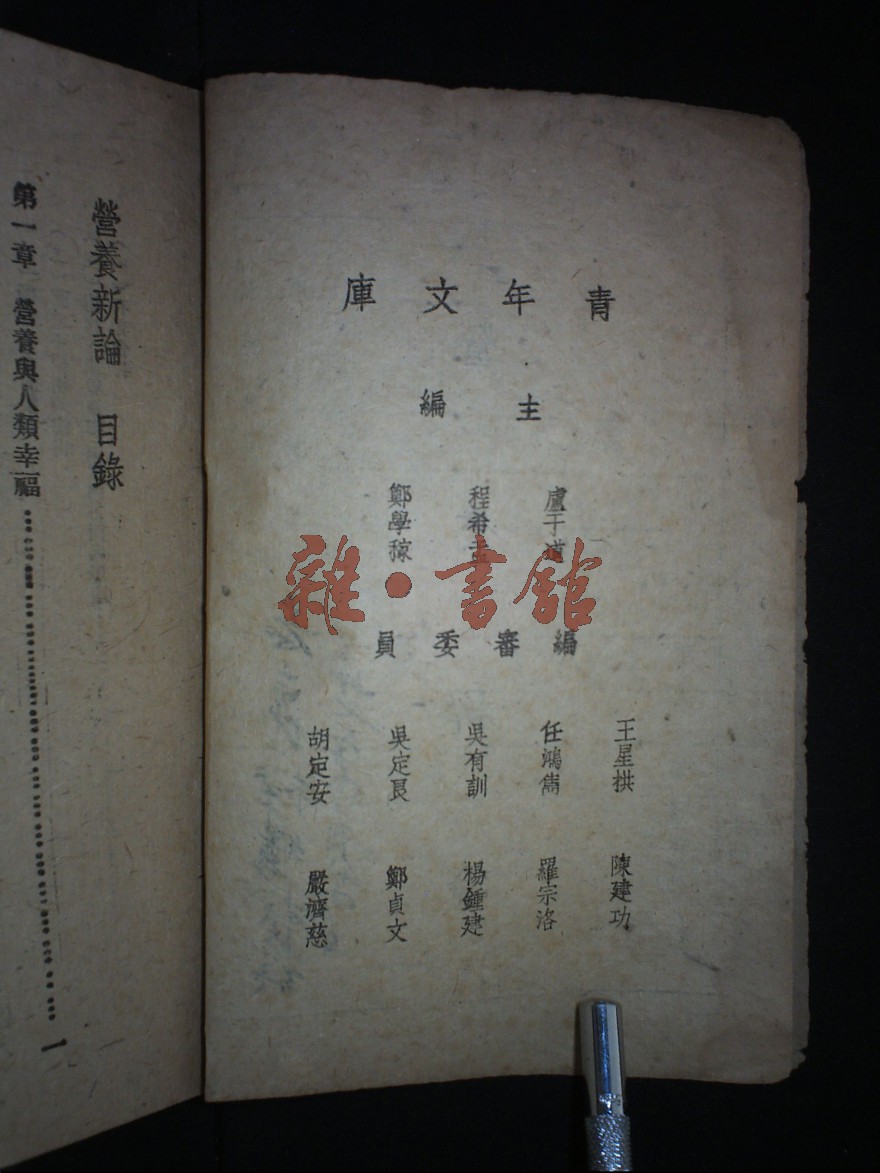 青年文庫
主編
盧于道
程希孟
鄭學稼
編審委員
王星拱
任鴻雋
吳有訓
吳定良
胡定安
陳建功
羅宗洛
楊鍾建
鄭貞文
嚴濟慈
營養新論 目錄
第一章 營養與人類幸福 1
雜·書館